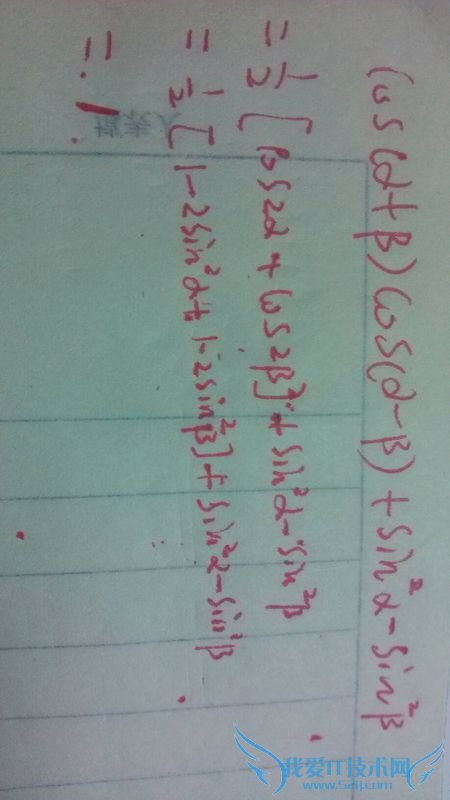 cos(α+β)cos(α-β)+sin²α-sin²β
=½[cos2α+cos2β]+sin²α-sin²β
=½[1-2sin²α+1-2sin²β]+sin²α-sin²β
=.1.
我爱IT技术网
www.52ij.com